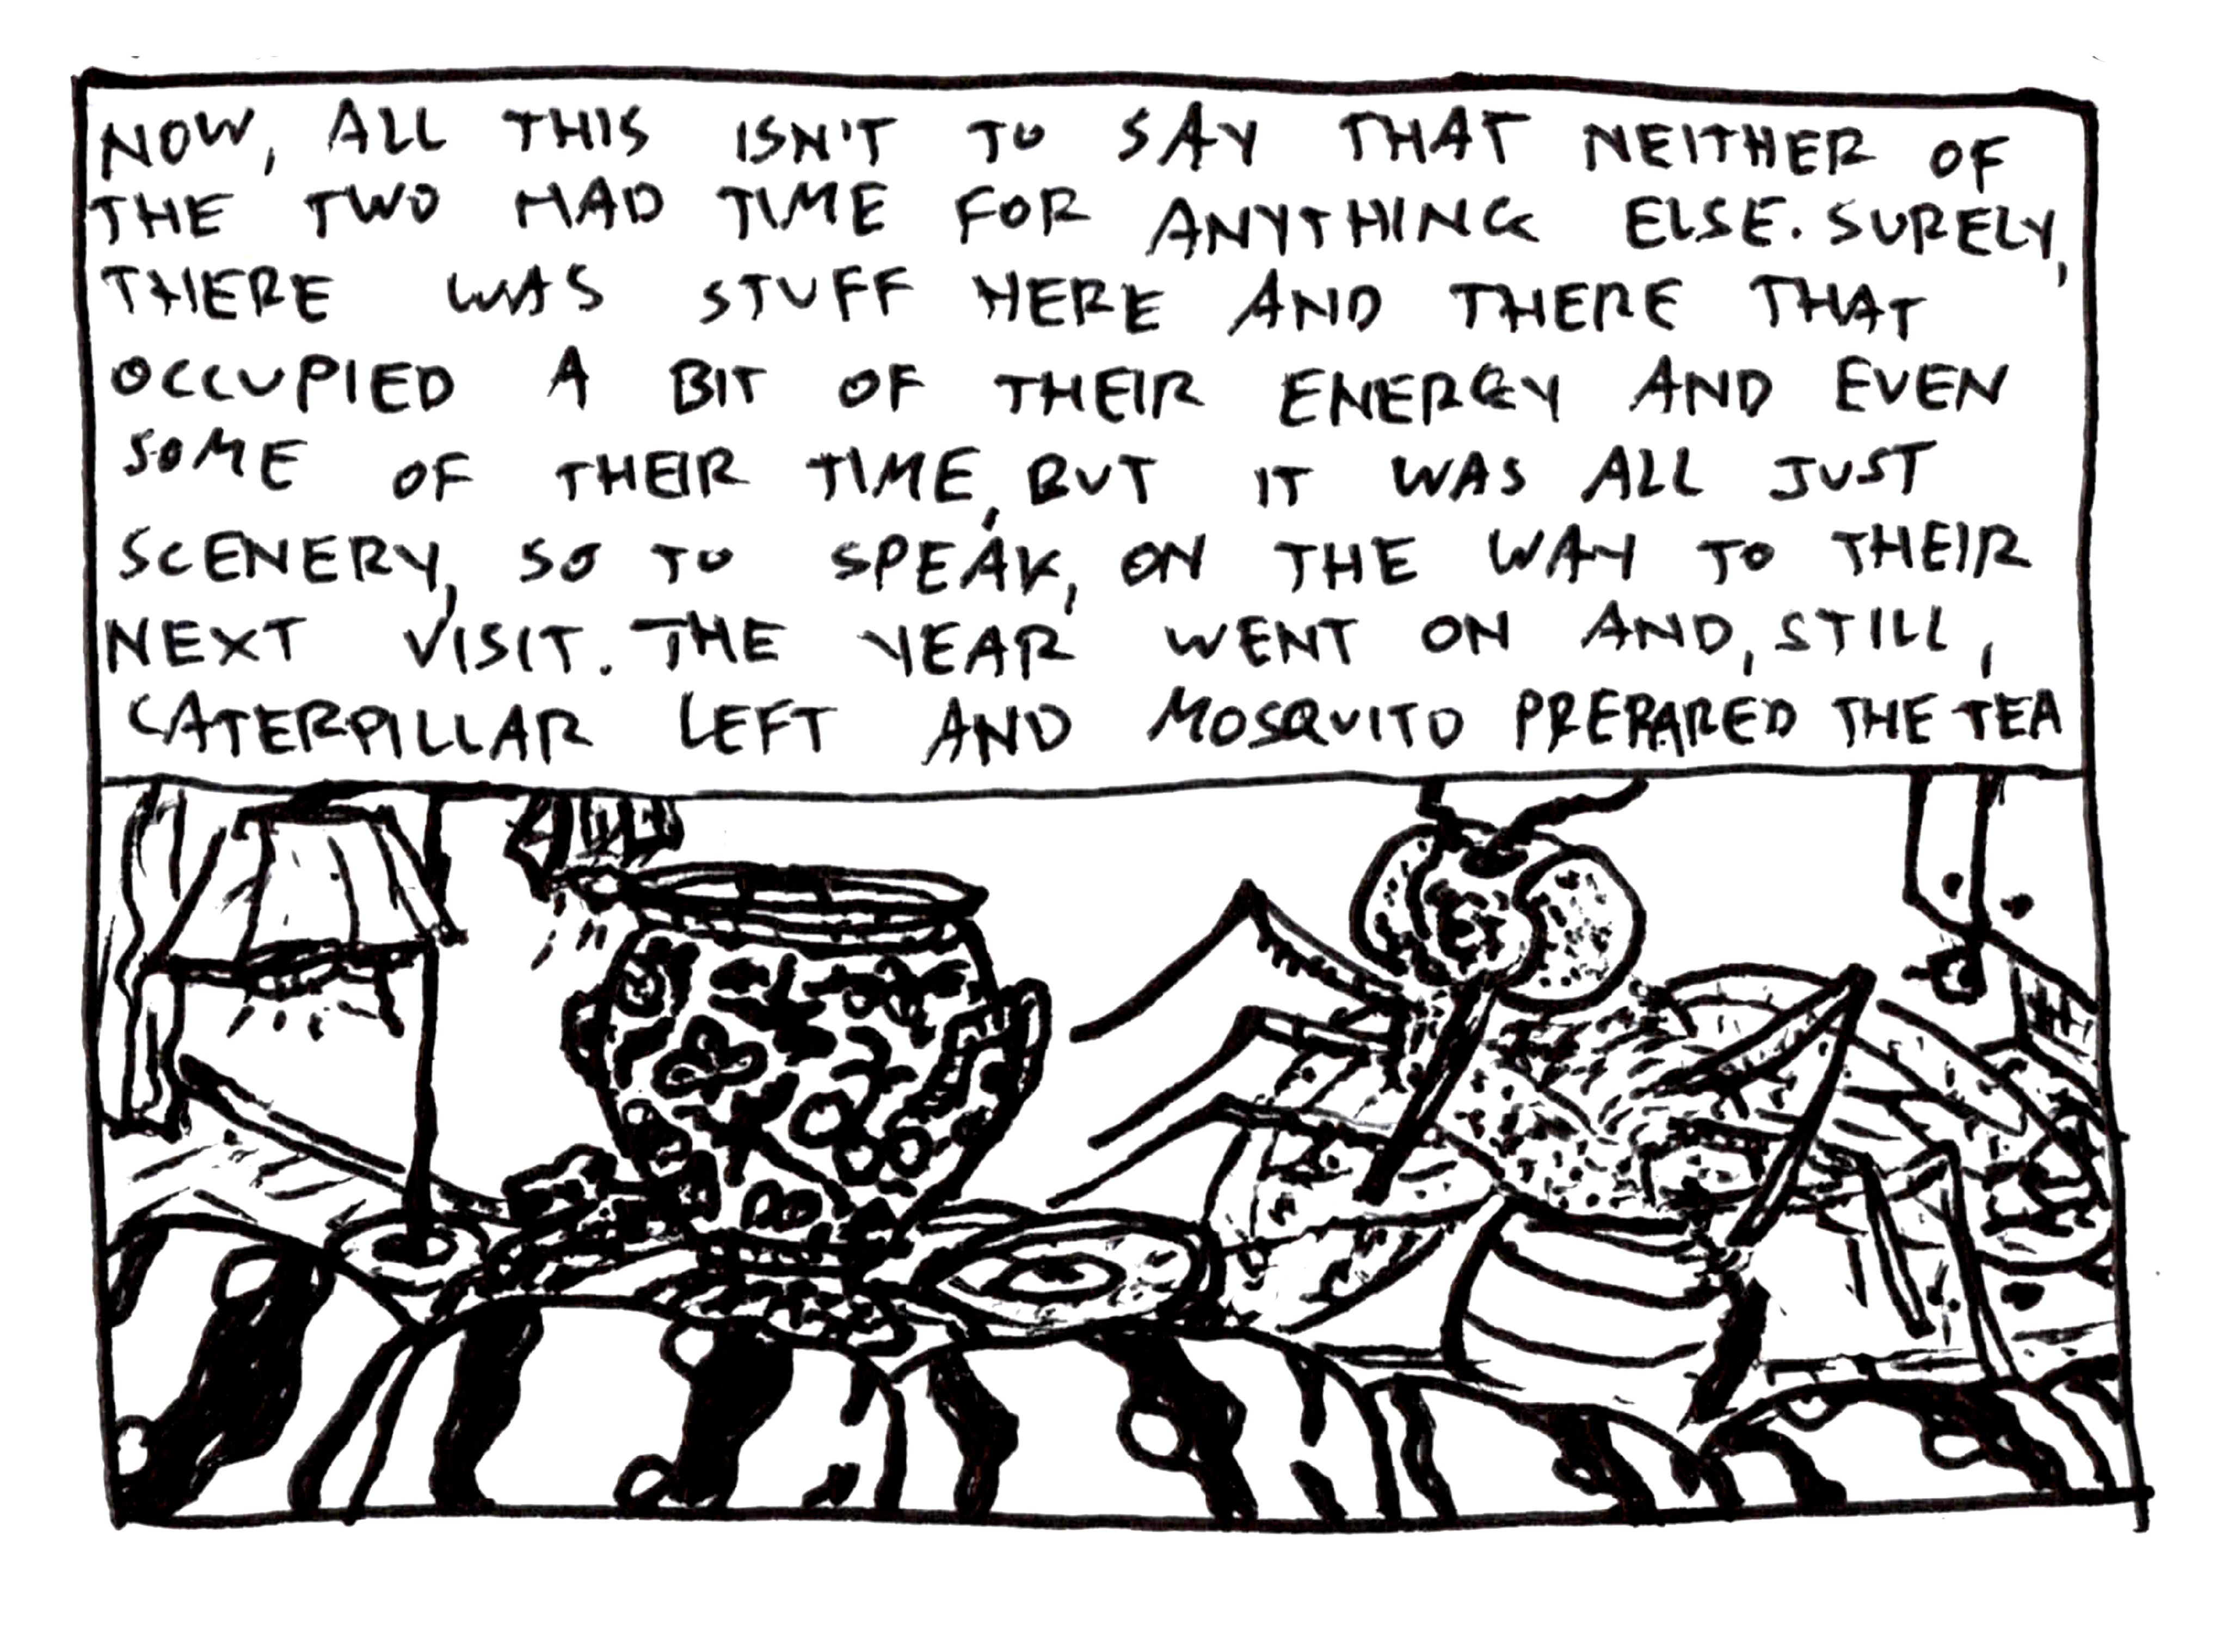 NOW, ALL THIS ISN'T TO SAY THAT NEITHER OF
THE TWO HAD TIME FOR ANYTHING ELSE. SURELY,
THERE WAS STUFF HERE AND THERE THAT
OCCUPIED A BIT OF THEIR ENERGY AND EVEN
SOME OF THEIR TIME, BUT IT WAS ALL JUST
SCENERY, SO TO SPEAK, ON THE WAY TO THEIR
NEXT VISIT. THE YEAR WENT ON AND, STILL,
CATERPILLAR LEFT AND MOSQUITO PREPARED THE TEA